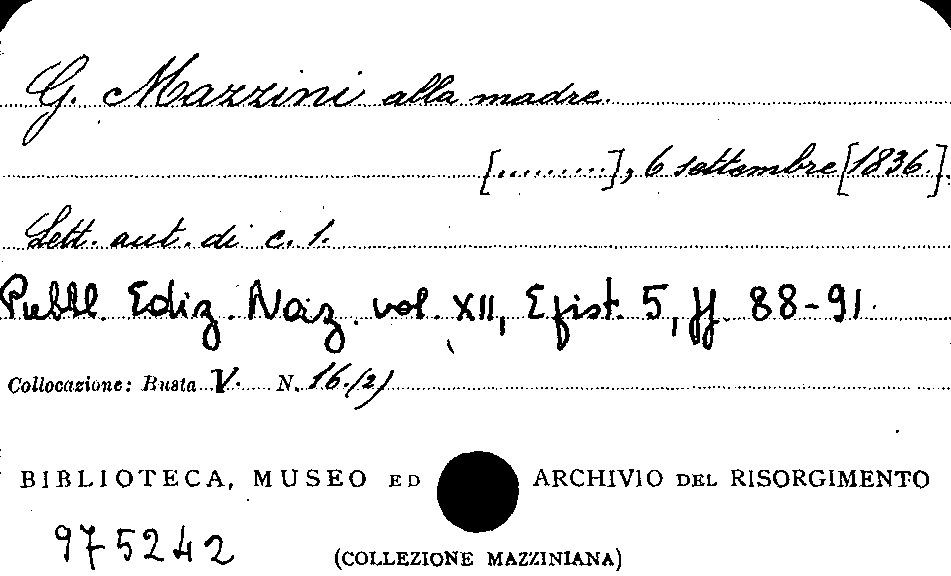 G. Mazzini alla madre.
[..........], 6 settembre [1836.].
Lett. aut. di c. 1.
Pubbl. Ediz. Naz. vol. XII, Epist. 5, pp. 88-91.
Collocazione: Busta V. N. 16.(2)
BIBLIOTECA, MUSEO ED ARCHIVIO DEL RISORGIMENTO
975242
(COLLEZIONE MAZZINIANA)